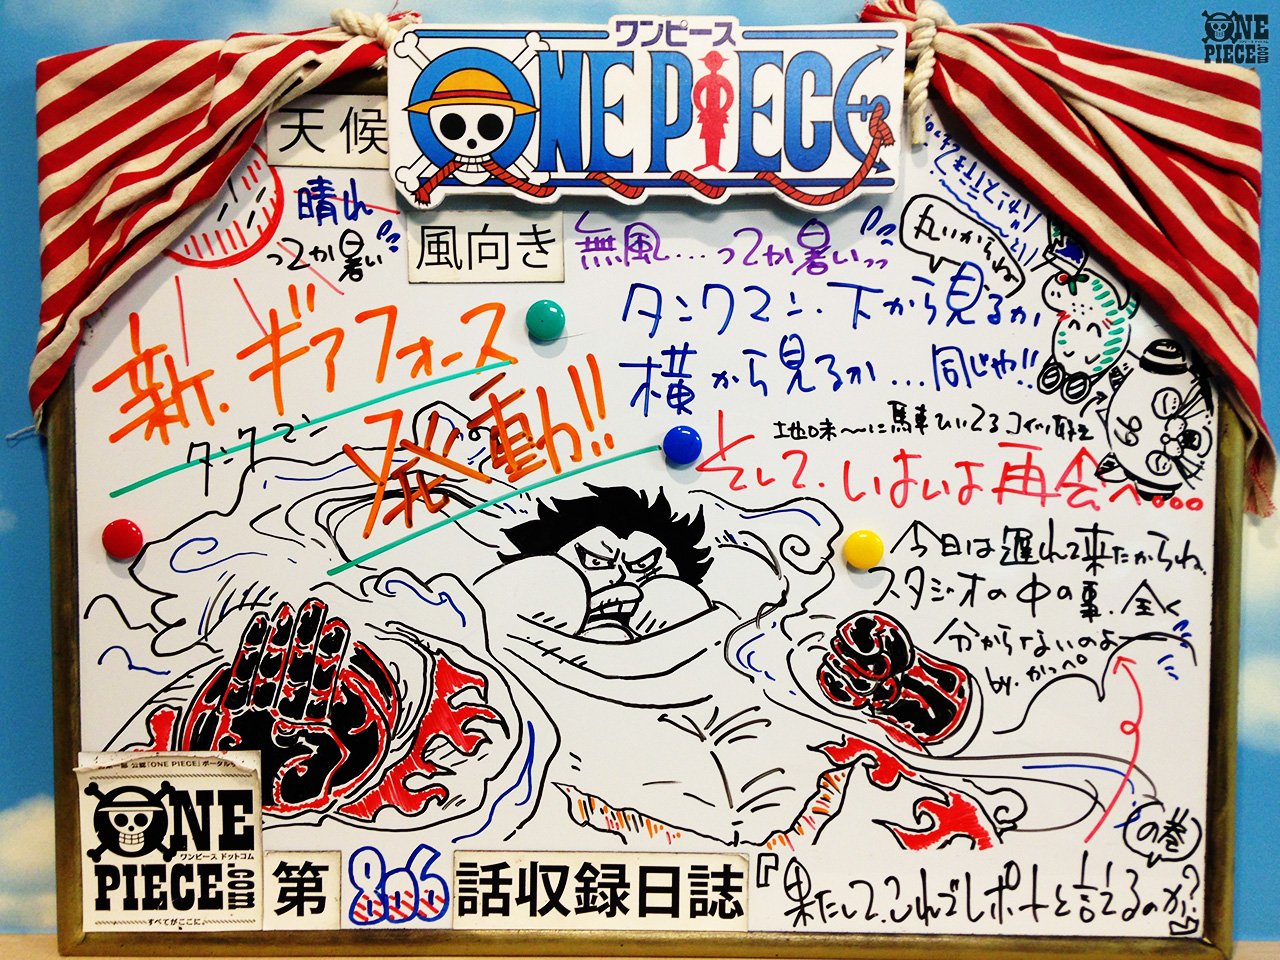 ワンピース
ONE PIECE
ONE PIECE.com
天候
晴れ
ってか暑い!!
風向き
無風...ってか暑いっっ
丸いからね
新.ギアフォース
タンクマン
発動!!
タンクマン.下から見るか
横から見るか...同じや!!
地味〜に馬車ひいてるコイツ好き
そして.いよいよ再会へ...
今日は遅れて来たからね.
スタジオの中の事.全く
分からないのよー
by.かっぺ
公認「ONE PIECE」ポータルサ
ONE PIECE.com
ワンピース ドットコム
すべてがここに。
第806話収録日誌
『果たして.これでレポートと言えるのか?』
の巻